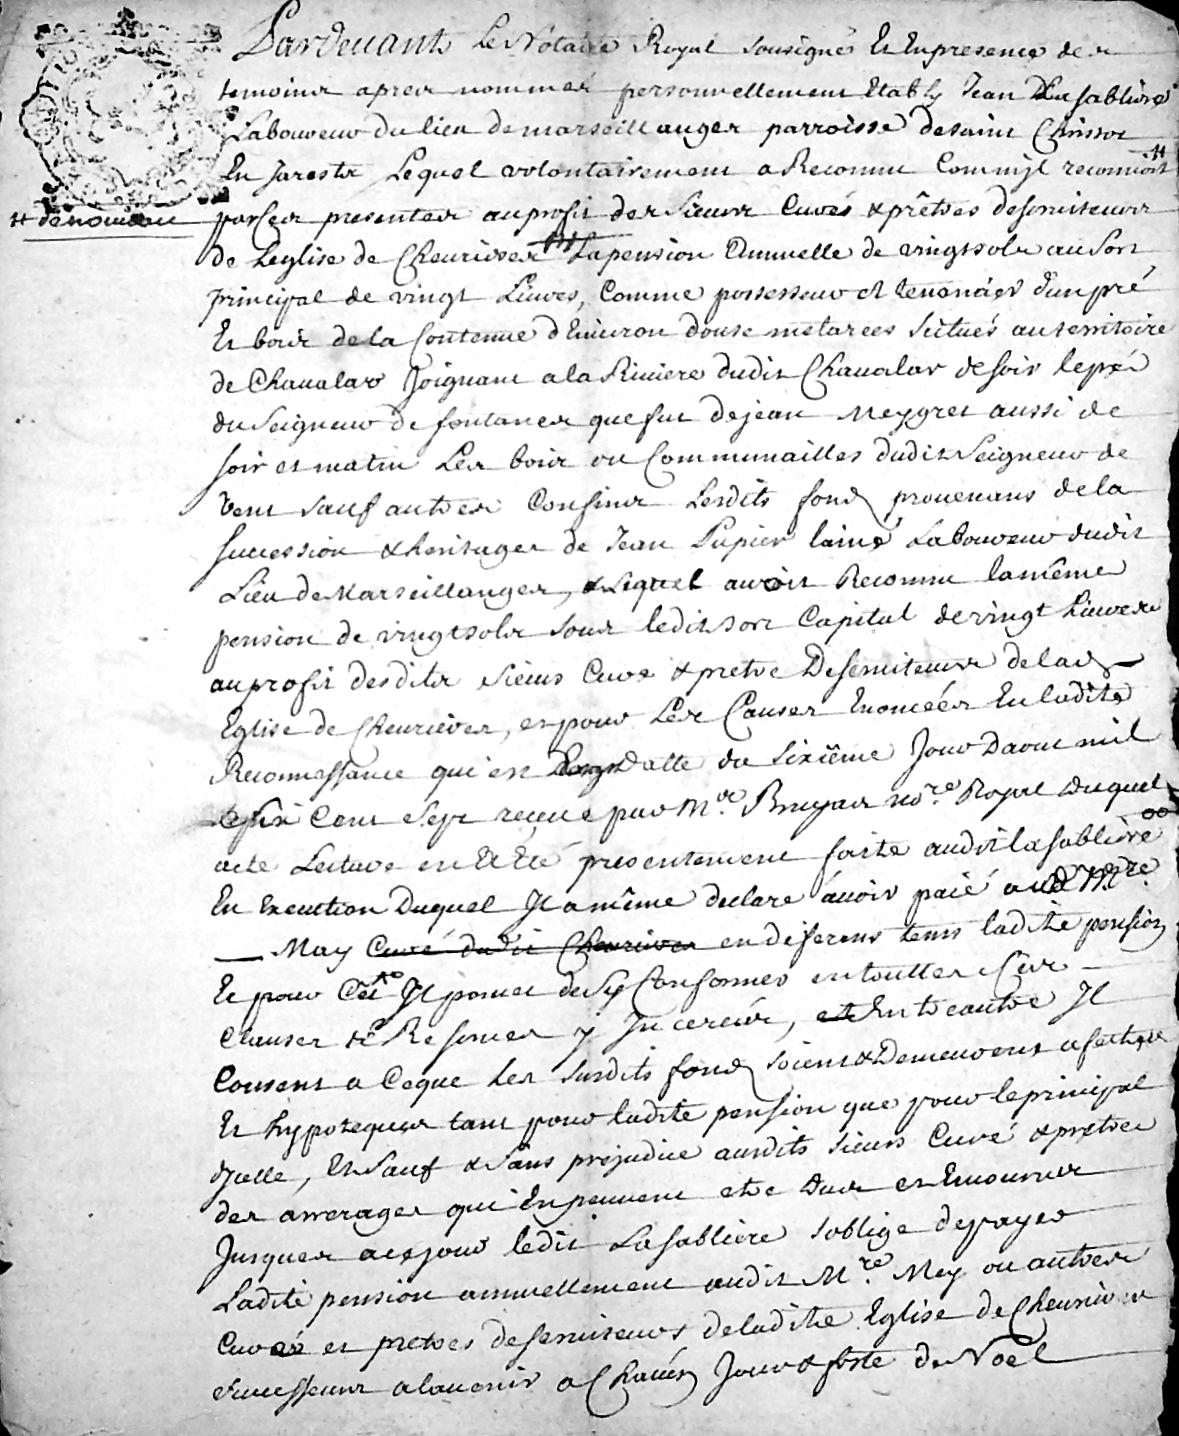 Pardevant Le Notaire Royal sousigné Et En presence des
temoins apres nommés personnellement Etably Jean Lasabliere
Laboureur du lieu de marseillanges parroisse de saint Christot
En Jarestz Lequel volontairement a Reconnu Comm'jl reconnoit #
# de nouveau
par Ces presentes au profit des sieurs Curés & prêtres deserviteurs
de Leglise de Chevrieres La pension Annuelle de vingt sols au sort
principal de vingt Livres, Comme possesseur et tenancier d'un pré
Et bois de la Contenue d'Environ douse metarees scitués au territoire
de Chavalar Joignant a la Riviere dudit Chavalar de soir le pré
du Seigneur de fontanes que fut de jean Meygret aussi de
soir et matin Les bois ou Communailles dudit Seigneur de
vent sauf autres Confins Lesdits fond provenans de la
succession & heritages de Jean Pupier lainé Laboureur dudit
Lieu de Marseillanges, Lequel auroit Reconnu la même
pension de vingt sols sous ledit sort Capital de vingt Livres
au profit desdits sieurs Curé & pretre Deserviteurs de lad
Eglise de Chevrieres, et pour Les Causes Enoncées En ladite
Reconnessance qui est datte du sixiême Jour Daout mil
six Cent Sept reçeue par Me Bruyas nore Royal Duquel
acte Lecture en Et Eté presentement faite audit lasabliere
En Execution Duquel Jl a même declaré avoir paié aud Mre
May Curé dudit Chevrieres en diferens tems ladite pension
Et pour Cet Jl promet de sy Conformer en touttes Ses
Clauses & Reserves y Incerées, Entre autre Jl
Consent a Ceque Les susdits fond soient & Demeurent afectés
Et hypoteques tant pour ladite pension que pour le principal
d'jcelle, Et Sauf & sans prejudice ausdits sieurs Curé & pretre
des arrerages qui En peuvent etre Dus et Encourus
Jusques a ce jour ledit Lasabliere s'oblige de payer
Ladite pension annuellement audit Mre Mey ou autres
Curé et pretres deserviteurs de ladite Eglise de Chevrieres
successeurs a lavenir a Chaque Jour & feste de Noël